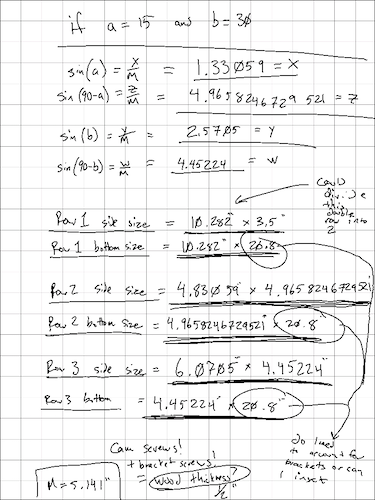 if a = 15 and b = 30
sin(a) = x/M = 1.33059 = x
sin(90-a) = z/M = 4.9658246729521 = z
sin(b) = y/M = 2.5705 = y
sin(90-b) = w/M = 4.45224 = w
could
divide
this
double
row into
2
Row 1 side size = 10.282" x 3.5"
Row 1 bottom size = 10.282" x 20.8"
Row 2 side size = 4.83059" x 4.9658246729521"
Row 2 bottom size = 4.9658246729521" x 20.8"
Row 3 side size = 6.0705" x 4.45224"
Row 3 bottom = 4.45224" x 20.8"
do I need
to account for
brackets or can
I inset
Cam screws!
+ bracket screws!
= wood thickness?
1/2"
M = 5.141"